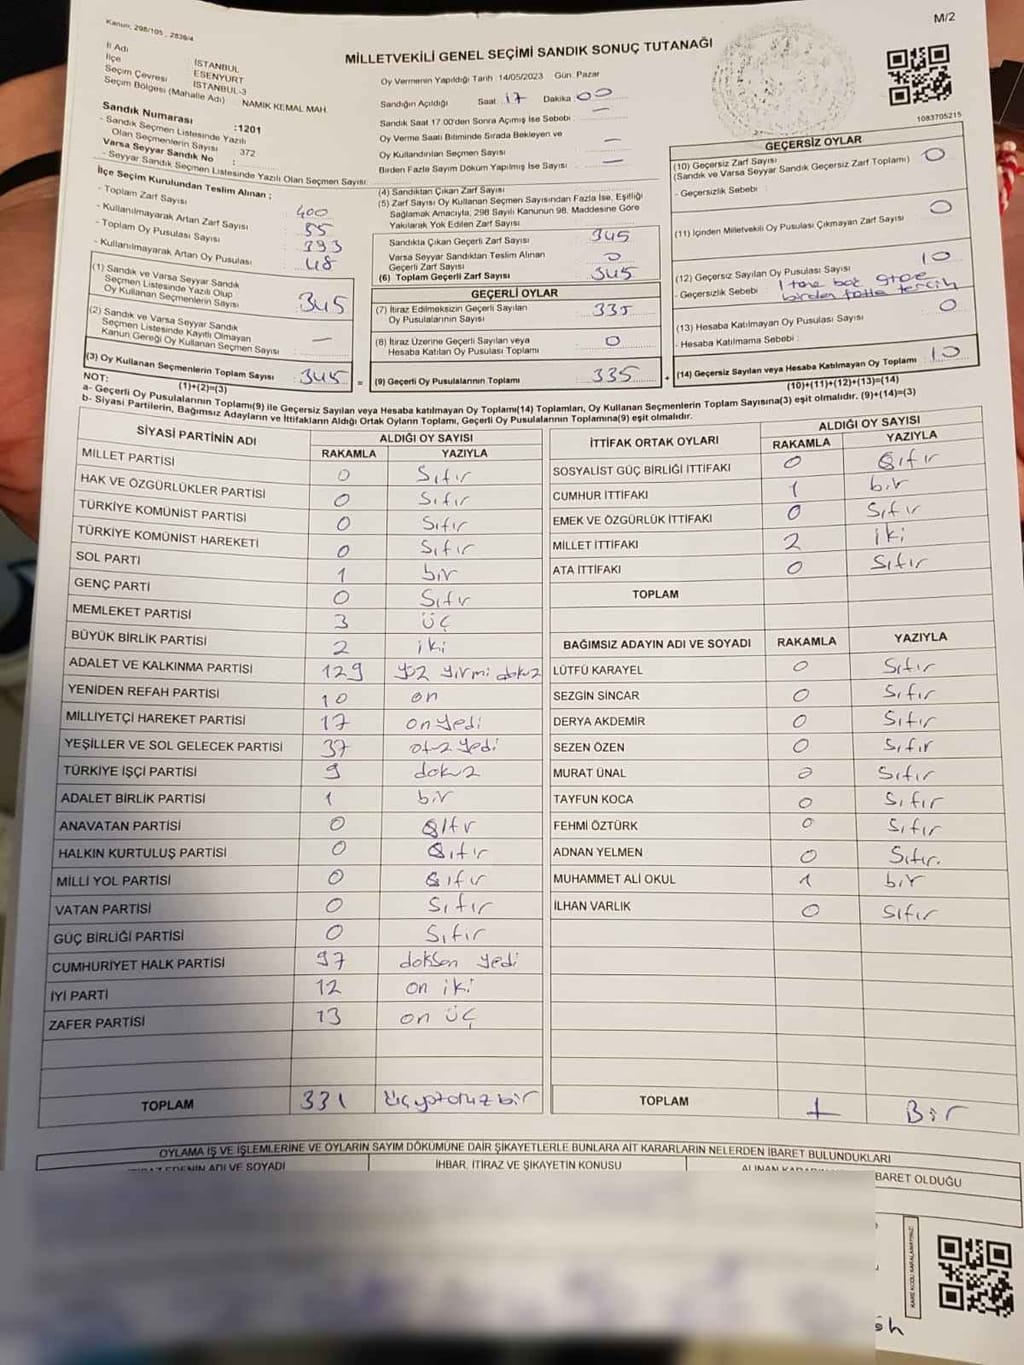 Kanun: 298/105
M/2
MİLLETVEKİLİ GENEL SEÇİMİ SANDIK SONUÇ TUTANAĞI
İl Adı İSTANBUL
İlçe ESENYURT
Seçim Çevresi İSTANBUL-3
Seçim Bölgesi (Mahalle Adı) NAMIK KEMAL MAH.
Sandık Numarası :1201
- Sandık Seçmen Listesinde Yazılı
Olan Seçmenlerin Sayısı : 372
Varsa Seyyar Sandık No :
- Seyyar Sandık Seçmen Listesinde Yazılı Olan Seçmen Sayısı:
İlçe Seçim Kurulundan Teslim Alınan ;
- Toplam Zarf Sayısı : 400
- Kullanılmayarak Artan Zarf Sayısı : 55
- Toplam Oy Pusulası Sayısı : 393
- Kullanılmayarak Artan Oy Pusulası : 48
(1) Sandık ve Varsa Seyyar Sandık
Seçmen Listesinde Yazılı Olup
Oy Kullanan Seçmenlerin Sayısı : 345
(2) Sandık ve Varsa Seyyar Sandık
Seçmen Listesinde Kayıtlı Olmayan
Kanun Gereği Oy Kullanan Seçmen Sayısı : —
(3) Oy Kullanan Seçmenlerin Toplam Sayısı : 345 =
(1)+(2)=(3)
Oy Vermenin Yapıldığı Tarih :14/05/2023 Gün: Pazar
Sandığın Açıldığı Saat :17 Dakika :00
Sandık Saat 17.00'den Sonra Açılmış İse Sebebi : —
Oy Verme Saati Bitiminde Sırada Bekleyen ve
Oy Kullandırılan Seçmen Sayısı : —
Birden Fazla Sayım Döküm Yapılmış İse Sayısı : —
(4) Sandıktan Çıkan Zarf Sayısı :
(5) Zarf Sayısı Oy Kullanan Seçmen Sayısından Fazla İse, Eşitliği
Sağlamak Amacıyla, 298 Sayılı Kanunun 98. Maddesine Göre
Yakılarak Yok Edilen Zarf Sayısı :
Sandıkla Çıkan Geçerli Zarf Sayısı : 345
Varsa Seyyar Sandıktan Teslim Alınan
Geçerli Zarf Sayısı : 0
(6) Toplam Geçerli Zarf Sayısı : 345
GEÇERLİ OYLAR
(7) İtiraz Edilmeksizin Geçerli Sayılan
Oy Pusulalarının Sayısı : 335
(8) İtiraz Üzerine Geçerli Sayılan veya
Hesaba Katılan Oy Pusulası Toplamı : 0
(9) Geçerli Oy Pusulalarının Toplamı : 335 +
1083705215
GEÇERSİZ OYLAR
(10) Geçersiz Zarf Sayısı
(Sandık ve Varsa Seyyar Sandık Geçersiz Zarf Toplamı) : 0
- Geçersizlik Sebebi :
(11) İçinden Milletvekili Oy Pusulası Çıkmayan Zarf Sayısı : 0
(12) Geçersiz Sayılan Oy Pusulası Sayısı : 10
- Geçersizlik Sebebi : 1 tane boş
birden fazla tercih
(13) Hesaba Katılmayan Oy Pusulası Sayısı : 0
- Hesaba Katılmama Sebebi :
(14) Geçersiz Sayılan veya Hesaba Katılmayan Oy Toplamı : 10
(10)+(11)+(12)+(13)=(14)
NOT:
a- Geçerli Oy Pusulalarının Toplamı(9) ile Geçersiz Sayılan veya Hesaba katılmayan Oy Toplamı(14) Toplamları, Oy Kullanan Seçmenlerin Toplam Sayısına(3) eşit olmalıdır. (9)+(14)=(3)
b- Siyasi Partilerin, Bağımsız Adayların ve İttifakların Aldığı Ortak Oyların Toplamı, Geçerli Oy Pusulalarının Toplamına(9) eşit olmalıdır.
SİYASİ PARTİNİN ADI ALDIĞI OY SAYISI
RAKAMLA YAZIYLA
MİLLET PARTİSİ 0 Sıfır
HAK VE ÖZGÜRLÜKLER PARTİSİ 0 Sıfır
TÜRKİYE KOMÜNİST PARTİSİ 0 Sıfır
TÜRKİYE KOMÜNİST HAREKETİ 0 Sıfır
SOL PARTİ 1 bir
GENÇ PARTİ 0 Sıfır
MEMLEKET PARTİSİ 3 üç
BÜYÜK BİRLİK PARTİSİ 2 iki
ADALET VE KALKINMA PARTİSİ 129 yüz yirmi dokuz
YENİDEN REFAH PARTİSİ 10 on
MİLLİYETÇİ HAREKET PARTİSİ 17 on yedi
YEŞİLLER VE SOL GELECEK PARTİSİ 37 otuz yedi
TÜRKİYE İŞÇİ PARTİSİ 9 dokuz
ADALET BİRLİK PARTİSİ 1 bir
ANAVATAN PARTİSİ 0 Sıfır
HALKIN KURTULUŞ PARTİSİ 0 Sıfır
MİLLİ YOL PARTİSİ 0 Sıfır
VATAN PARTİSİ 0 Sıfır
GÜÇ BİRLİĞİ PARTİSİ 0 Sıfır
CUMHURİYET HALK PARTİSİ 97 doksan yedi
İYİ PARTİ 12 on iki
ZAFER PARTİSİ 13 on üç
TOPLAM 331 üçyüzotuzbir
İTTİFAK ORTAK OYLARI ALDIĞI OY SAYISI
RAKAMLA YAZIYLA
SOSYALİST GÜÇ BİRLİĞİ İTTİFAKI 0 Sıfır
CUMHUR İTTİFAKI 1 bir
EMEK VE ÖZGÜRLÜK İTTİFAKI 0 Sıfır
MİLLET İTTİFAKI 2 iki
ATA İTTİFAKI 0 Sıfır
TOPLAM
BAĞIMSIZ ADAYIN ADI VE SOYADI RAKAMLA YAZIYLA
LÜTFÜ KARAYEL 0 Sıfır
SEZGİN SİNCAR 0 Sıfır
DERYA AKDEMİR 0 Sıfır
SEZEN ÖZEN 0 Sıfır
MURAT ÜNAL 0 Sıfır
TAYFUN KOCA 0 Sıfır
FEHMİ ÖZTÜRK 0 Sıfır
ADNAN YELMEN 0 Sıfır.
MUHAMMET ALİ OKUL 1 bir
İLHAN VARLIK 0 Sıfır
TOPLAM 1 Bir
OYLAMA İŞ VE İŞLEMLERİNE VE OYLARIN SAYIM DÖKÜMÜNE DAİR ŞİKAYETLERLE BUNLARA AİT KARARLARIN NELERDEN İBARET BULUNDUKLARI
ADI VE SOYADI İHBAR, İTİRAZ VE ŞİKAYETİN KONUSU